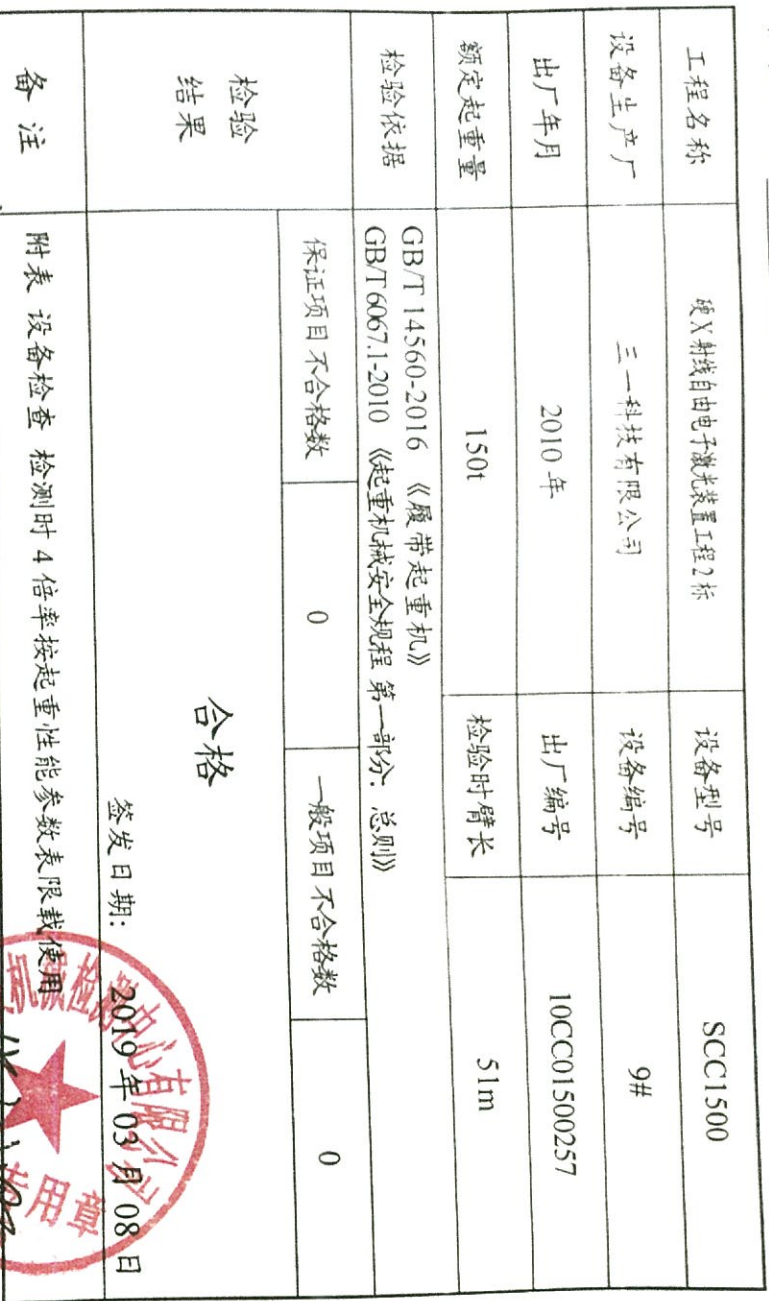 工程名称 硬X射线自由电子激光装置工程2标 设备型号 SCC1500
设备生产厂 三一科技有限公司 设备编号 9#
出厂年月 2010年 出厂编号 10CC01500257
额定起重量 150t 检验时臂长 51m
检验依据
GB/T 14560-2016 《履带起重机》
GB/T 6067.1-2010 《起重机械安全规程 第一部分：总则》
检验
结果
保证项目不合格数 0 一般项目不合格数 0
合格
签发日期： 2019年03月08日
备注 附表 设备检查 检测时4倍率按起重性能参数表限载使用
机械检测中心有限公司
专用章